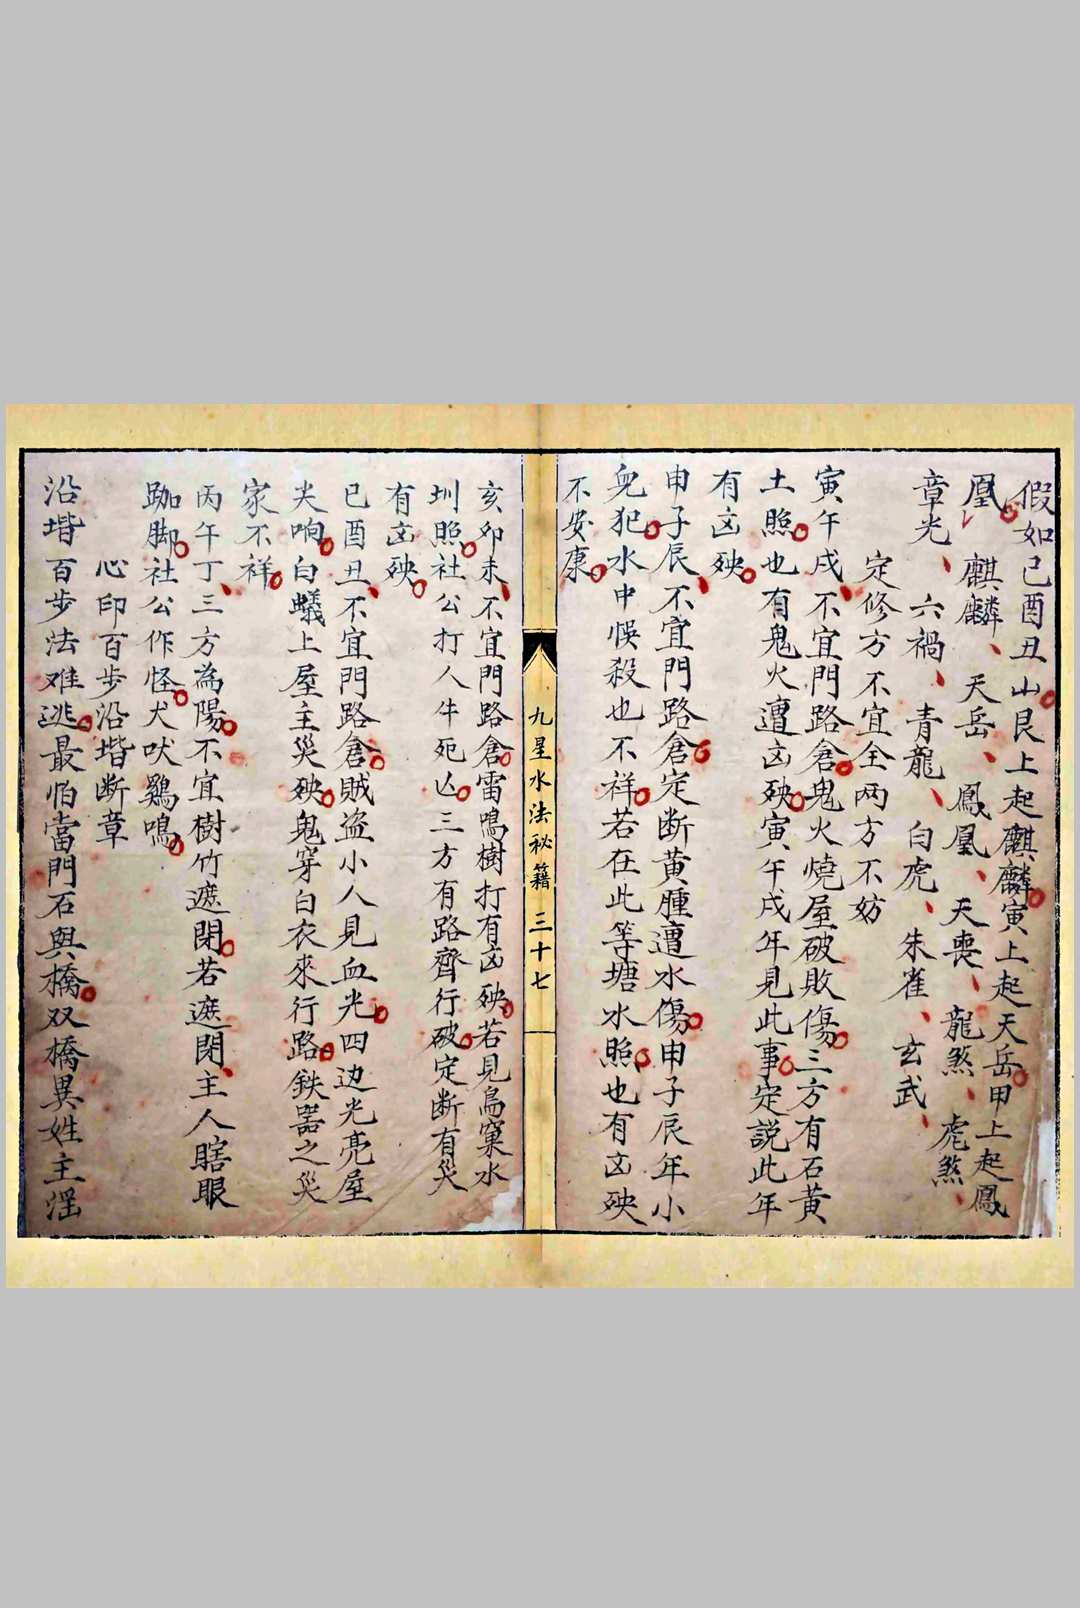 假如已酉丑山艮上起麒麟寅上起天岳甲上起鳳
凰　麒麟、天岳、鳳凰、天喪、龍煞、虎煞、
章光、六禍、青龍、白虎、朱雀、玄武、
定修方不宜全两方不妨
寅午戌、不宜門路倉鬼火燒屋破敗傷三方有石黄
土照也有鬼火遭凶殃寅午戌年見此事定説此年
有凶殃
申子辰、不宜門路倉定断黄腫遭水傷申子辰年小
兒犯水中悞殺也不祥若在此等塘水照也有凶殃
不安康
九星水法秘籍 三十七
亥卯未、不宜門路倉雷鳴樹打有凶殃若見鳥窠水
圳照社公打人牛死亾三方有路齊行破定断有災
有凶殃
已酉丑、不宜門路倉賊盗小人見血光四边光亮屋
尖响白蟻上屋主災殃鬼穿白衣來行路鉄器之災
家不祥
丙午丁、三方為陽不宜樹竹遮閉若遮閉、主人瞎眼
跏脚社公作怪犬吠鷄鳴
心印百步沿堦断章
沿堦百步法难逃最怕當門石與橋双橋異姓主滛